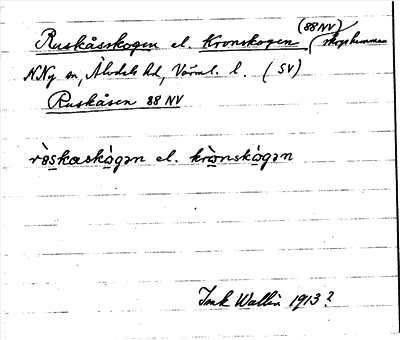 (88 NV)
Ruskåsskogen el. Kronskogen / skogshemman
N.Ny sn, Älvdals hd, Värml. l. (SV)
Ruskåsen 88 NV
rɵ̀skaskògən el. krònskògən
Ink Wallin 1913?